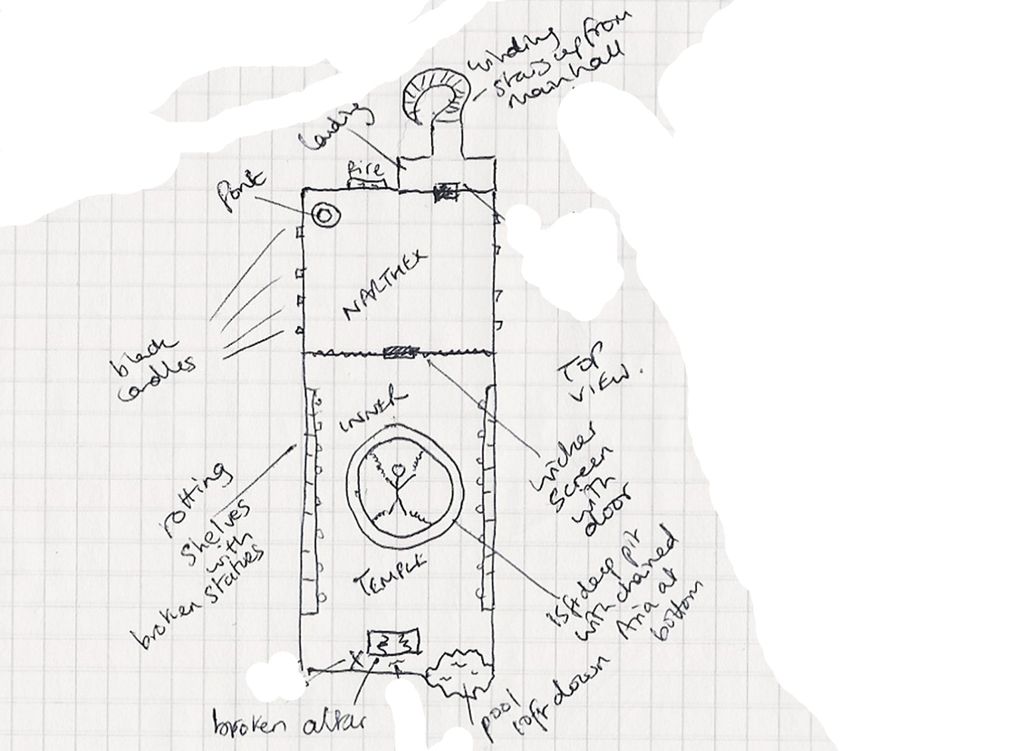 winding
stairs up from
main hall
landing
Fire
Font
NARTHEX
black
candles
TOP
VIEW.
INNER
wicker
screen
with
door
rotting
shelves
with
broken statues
TEMPLE
15ft deep pit
with chained
Aria at
bottom
X
T
broken altar
pool
10ft down